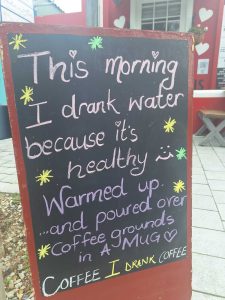 This morning
I drank water
because it's
healthy
Warmed up.
...and poured over
coffee grounds
in A MUG
COFFEE I DRANK COFFEE